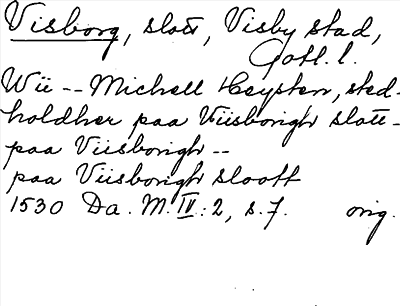 Visborg, slott, Visby stad,
Gotl. l.
Wii -- Michell Heysten, sted-
holdher paa Viisborigh slott -
paa Viisborigh --
paa Viisborigh sloott
1530 Da. M. IV: 2, s. 7. orig.